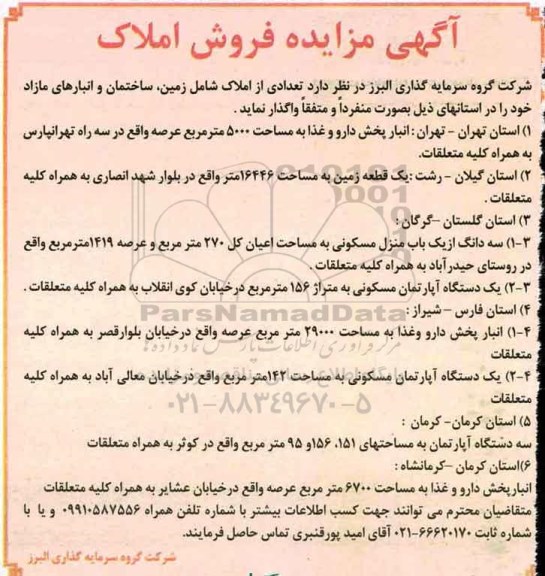 آگهی مزایده فروش املاک
شرکت گروه سرمایه گذاری البرز در نظر دارد تعدادی از املاک شامل زمین، ساختمان و انبارهای مازاد
خود را در استانهای ذیل بصورت منفرداً و متفقاً واگذار نماید .
۱) استان تهران - تهران : انبار پخش دارو و غذا به مساحت ۵۰۰۰ مترمربع عرصه واقع در سه راه تهرانپارس
به همراه کلیه متعلقات.
۲) استان گیلان - رشت :یک قطعه زمین به مساحت ۱۶۴۴۶متر واقع در بلوار شهد انصاری به همراه کلیه
متعلقات .
۳) استان گلستان –گرگان :
۳-۱) سه دانگ ازیک باب منزل مسکونی به مساحت اعیان کل ۲۷۰ متر مربع و عرصه ۱۴۱۹مترمربع واقع
در روستای حیدرآباد به همراه کلیه متعلقات .
۳-۲) یک دستگاه آپارتمان مسکونی به متراژ ۱۵۶ مترمربع درخیابان کوی انقلاب به همراه کلیه متعلقات .
۴) استان فارس – شیراز :
ParsNamadData
۴-۱) انبار پخش دارو وغذا به مساحت ۲۹۰۰۰ متر مربع عرصه واقع درخیابان بلوارقصر به همراه کلیه
متعلقات
۴-۲) یک دستگاه آپارتمان مسکونی به مساحت ۱۴۲متر مربع واقع درخیابان معالی آباد به همراه کلیه
متعلقات
۰۲۱-۸۸۳۴۹۶۷۰-۵
۵) استان کرمان- کرمان :
سه دستگاه آپارتمان به مساحتهای ۱۵۱، ۱۵۶و ۹۵ متر مربع واقع در کوثر به همراه متعلقات
۶)استان کرمان –کرمانشاه :
انبارپخش دارو و غذا به مساحت ۶۷۰۰ متر مربع عرصه واقع درخیابان عشایر به همراه کلیه متعلقات
متقاضیان محترم می توانند جهت کسب اطلاعات بیشتر با شماره تلفن همراه ۰۹۹۱۰۵۸۷۵۵۶ و یا با
شماره ثابت ۶۶۶۲۰۱۷۰-۰۲۱ آقای امید پورقنبری تماس حاصل فرمایند.
شرکت گروه سرمایه گذاری البرز